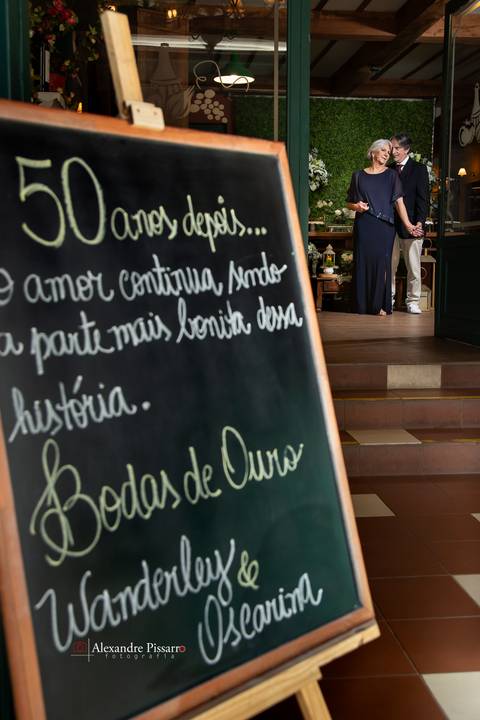 50 anos depois...
o amor continua sendo
a parte mais bonita dessa
história.
Bodas de Ouro
Wanderley &
Oscarina
Alexandre Pissarro
fotografia